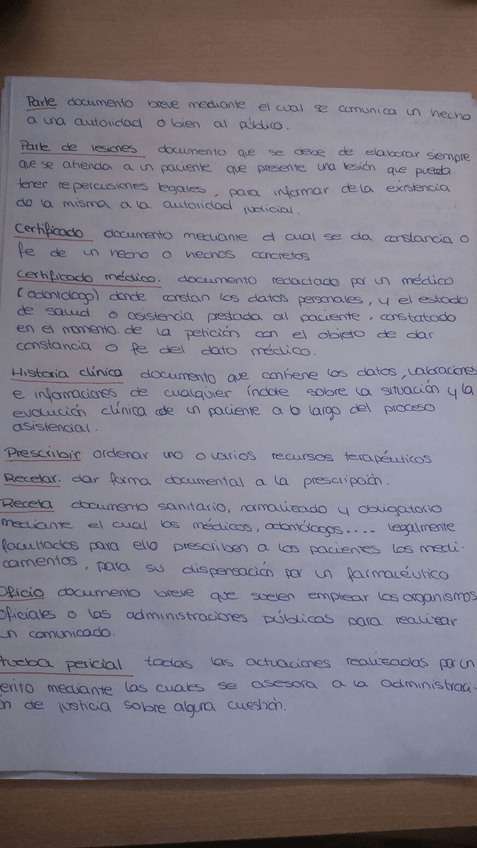 Parte documento breve mediante el cual se comunica un hecho
a una autoridad o bien al público.
Parte de lesiones documento que se debe de elaborar siempre
que se atienda a un paciente que presente una lesión que pueda
tener repercusiones legales, para informar de la existencia
de la misma a la autoridad judicial.
Certificado documento mediante el cual se da constancia o
fe de un hecho o hechos concretos
Certificado médico. documento redactado por un médico
(odontólogo) donde constan los datos personales, y el estado
de salud o asistencia prestada al paciente, constatado
en el momento de la petición con el objeto de dar
constancia o fe del dato médico.
Historia clínica documento que contiene los datos, valoraciones
e informaciones de cualquier índole sobre la situación y la
evolución clínica de un paciente a lo largo del proceso
asistencial.
Prescribir ordenar uno o varios recursos terapéuticos
Recetar. dar forma documental a la prescripción.
Receta documento sanitario, normalizado y obligatorio
mediante el cual los médicos, odontólogos.... legalmente
facultados para ello prescriben a los pacientes los medi-
camentos, para su dispensación por un farmacéutico
Oficio documento breve que suelen emplear los organismos
oficiales o las administraciones públicas para realizar
un comunicado.
Prueba pericial todas las actuaciones realizadas por un
perito mediante las cuales se asesora a la administraci-
ón de justicia sobre alguna cuestión.